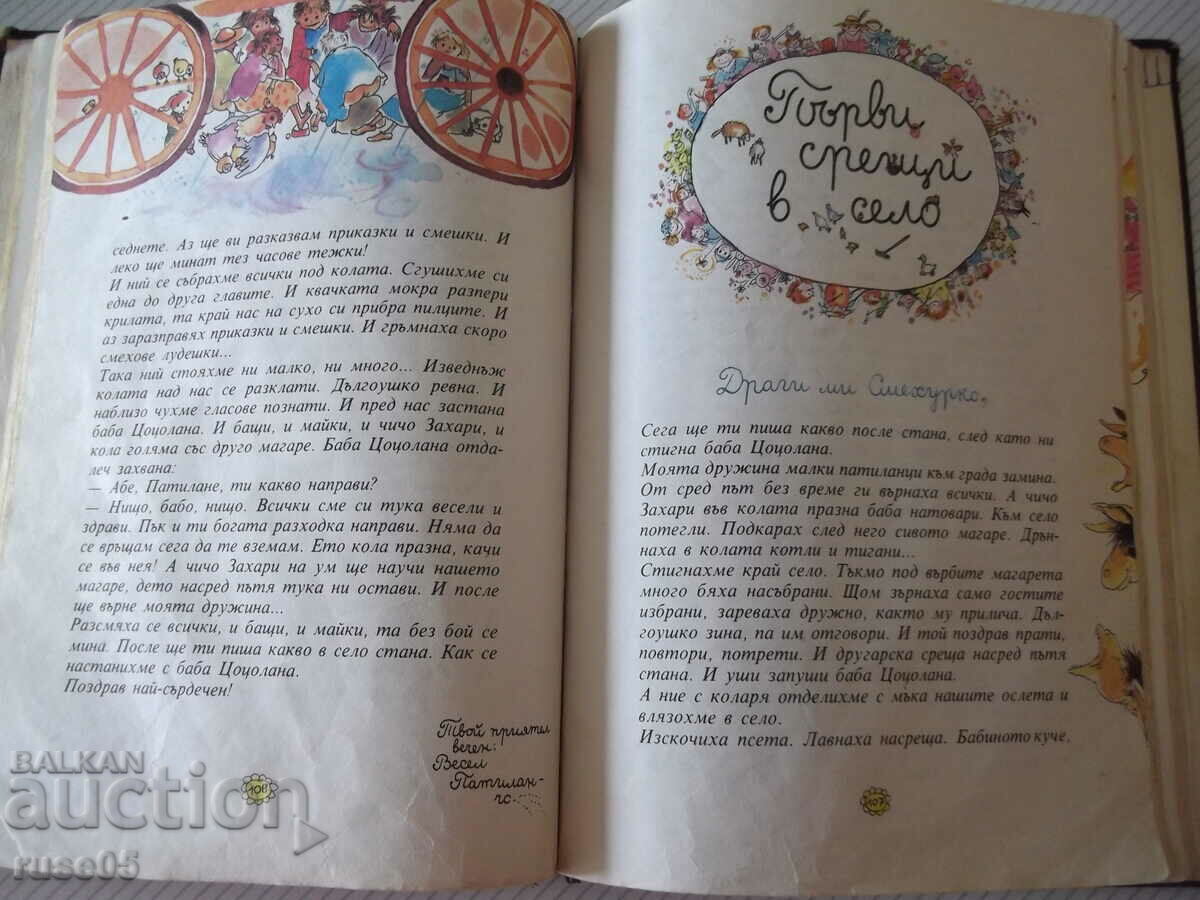 седнете. Аз ще ви разказвам приказки и смешки. И
леко ще минат тез часове тежки!
И ний се събрахме всички под колата. Сгушихме си
една до друга главите. И квачката мокра разпери
крилата, та край нас на сухо си прибра пилците. И
аз заразправях приказки и смешки. И гръмнаха скоро
смехове лудешки...
Така ний стояхме ни малко, ни много... Изведнъж
колата над нас се разклати. Дългоушко ревна. И
наблизо чухме гласове познати. И пред нас застана
баба Цоцолана. И бащи, и майки, и чичо Захари, и
кола голяма със друго магаре. Баба Цоцолана отда-
леч захвана:
— Абе, Патилане, ти какво направи?
— Нищо, бабо, нищо. Всички сме си тука весели и
здрави. Пък и ти богата разходка направи. Няма да
се връщам сега да те вземам. Ето кола празна, качи
се във нея! А чичо Захари на ум ще научи нашето
магаре, дето насред пътя тука ни остави. И после
ще върне моята дружина...
Разсмяха се всички, и бащи, и майки, та без бой се
мина. После ще ти пиша какво в село стана. Как се
настанихме с баба Цоцолана.
Поздрав най-сърдечен!
Твой приятел
вечен:
Весел
Патилан-
чо.
106
Първи
срещи
в село
Драги ми Смехурко,
Сега ще ти пиша какво после стана, след като ни
стигна баба Цоцолана.
Моята дружина малки патиланци към града замина.
От сред път без време ги върнаха всички. А чичо
Захари във колата празна баба натовари. Към село
потегли. Подкарах след него сивото магаре. Дрън-
наха в колата котли и тигани...
Стигнахме край село. Тъкмо под върбите магарета
много бяха насъбрани. Щом зърнаха само гостите
избрани, зареваха дружно, както му прилича. Дъл-
гоушко зина, па им отговори. И той поздрав прати,
повтори, потрети. И другарска среща насред пътя
стана. И уши запуши баба Цоцолана.
А ние с коларя отделихме с мъка нашите ослета и
влязохме в село.
Изскочиха псета. Лавнаха насреща. Бабиното куче,
107
BALKAN
auction
ruse05